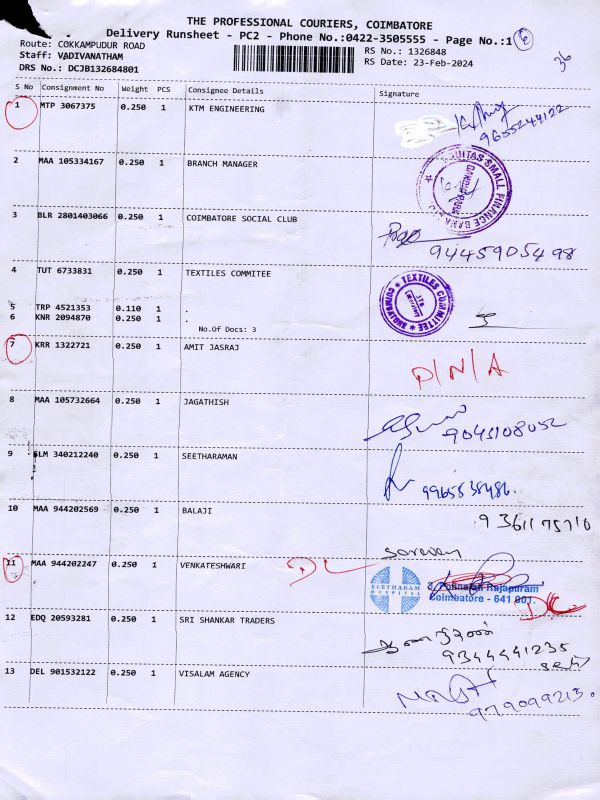 THE PROFESSIONAL COURIERS, COIMBATORE
Delivery Runsheet - PC2 - Phone No.:0422-3505555 - Page No.:1 6
Route: COKKAMPUDUR ROAD
RS No.: 1326848
36
Staff: VADIVANATHAM
RS Date: 23-Feb-2024
DRS No.: DCJB132684801
S No Consignment No Weight PCS Consignee Details Signature
1 MTP 3067375 0.250 1 KTM ENGINEERING
9655244122
2 MAA 105334167 0.250 1 BRANCH MANAGER
EQUITAS SMALL FINANCE BANK
3 BLR 2801403066 0.250 1 COIMBATORE SOCIAL CLUB
9445905498
4 TUT 6733831 0.250 1 TEXTILES COMMITEE
TEXTILES COMMITTEE COIMBATORE
5 TRP 4521353 0.110 1 .
6 KNR 2094870 0.250 1 .
No.Of Docs: 3
7 KRR 1322721 0.250 1 AMIT JASRAJ
D/N/A
8 MAA 105732664 0.250 1 JAGATHISH
9045108052
9 SLM 340212240 0.250 1 SEETHARAMAN
9965838486.
10 MAA 944202569 0.250 1 BALAJI
9361175710
saravan
11 MAA 944202247 0.250 1 VENKATESHWARI
DL
SEETHARAM HOSPITAL
Rajapuram
Coimbatore - 641 001.
DL
12 EDQ 20593281 0.250 1 SRI SHANKAR TRADERS
9344441235
13 DEL 901532122 0.250 1 VISALAM AGENCY
9790099213.